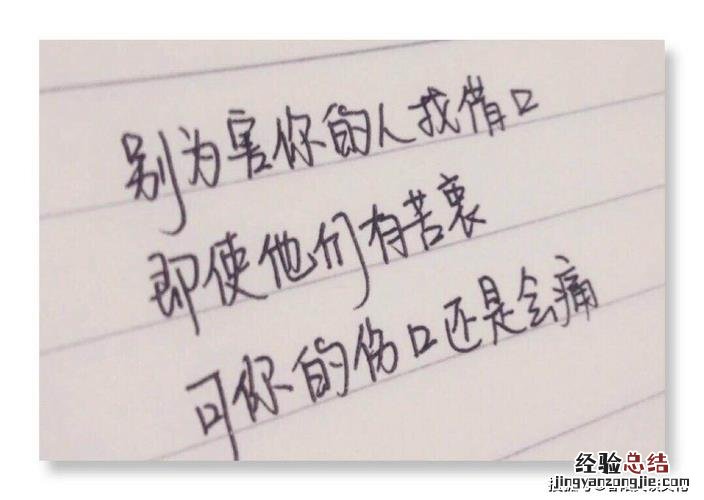 别为害你的人找借口
即使他们有苦衷
可你的伤口还是会痛
经验总结
jingyanzongjie.com